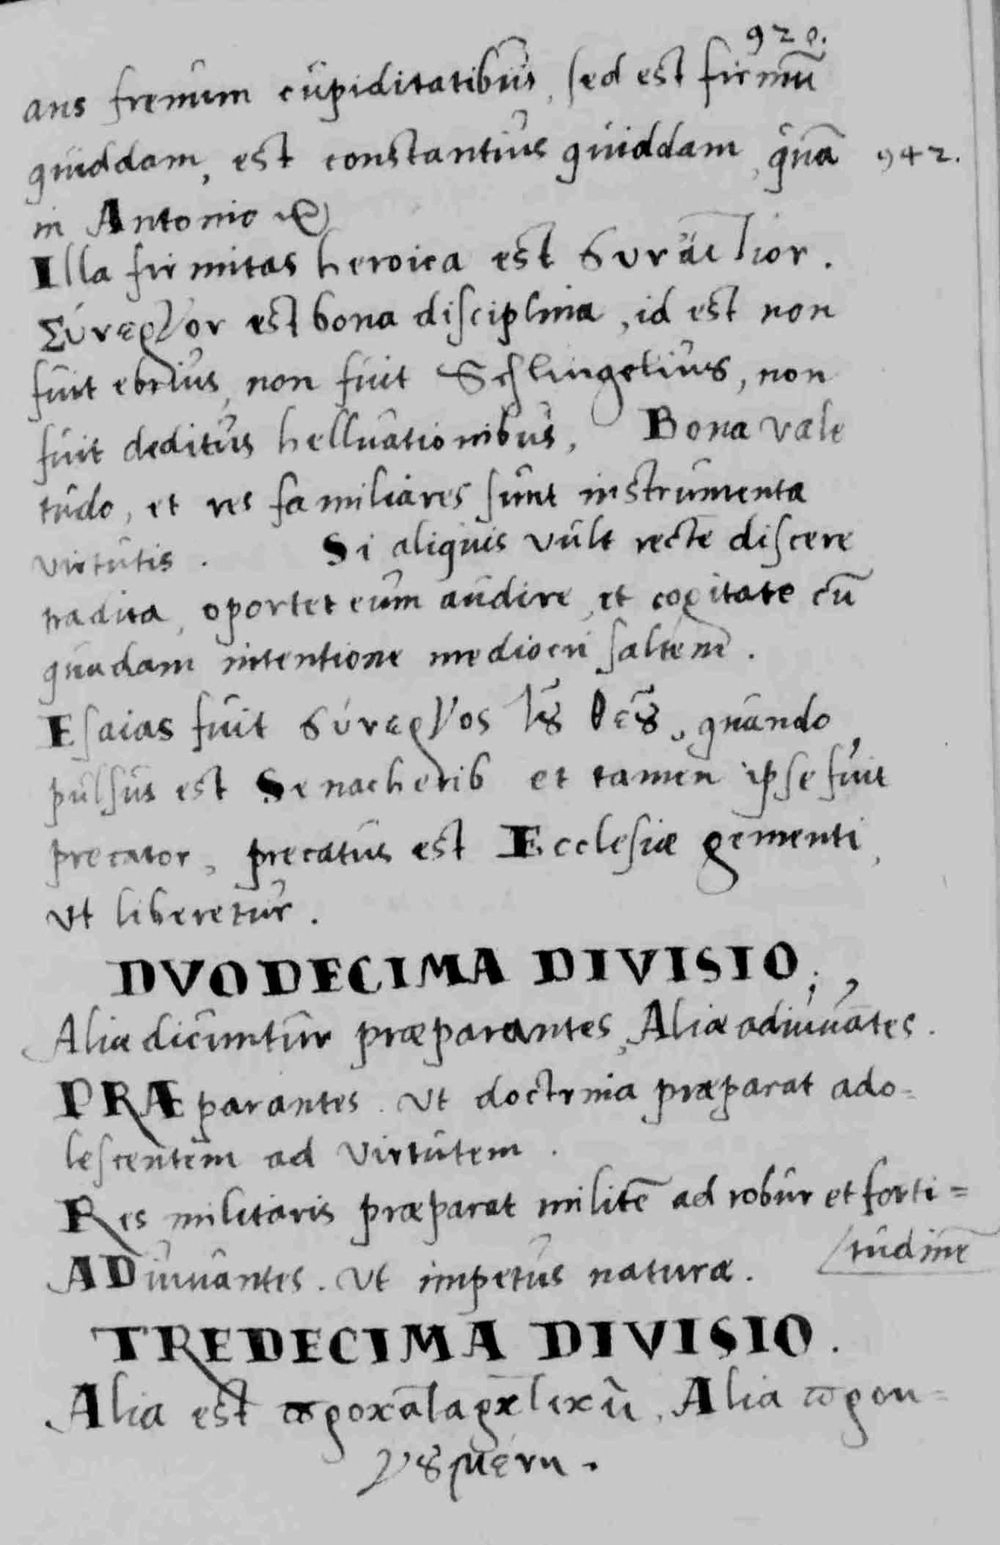 920.
ans frenum cupiditatibus, sed est firmū
quiddam, est constantius quiddam, quā 942.
in Antonio &c
Illa firmitas heroica est συναίτιον.
Συνεργὸν est bona disciplina, id est non
fuit ebrius, non fuit Schlingelius, non
fuit deditus helluationibus, Bona vale
tudo, et res familiares sunt instrumenta
virtutis. Si aliquis vult recte discere
tradita, oportet eum audire, et cogitate cū
quadam intentione mediocri saltem.
Esaias fuit συνεργὸς τοῦ θεοῦ, quando
pulsus est Senacherib et tamen ipse fuit
precator, precatus est Ecclesiæ gementi,
vt liberetur.
DVODECIMA DIVISIO.
Aliæ dicuntur præparantes, Aliæ adiuuātes.
PRÆparantes. Vt doctrina præparat ado-
lescentem ad virtutem.
Res militaris præparat militē ad robur et forti=
tudinē
ADiuuantes. Vt impetus naturæ.
TREDECIMA DIVISIO.
Alia est προκαταρκτικὴ, Alia προη-
γουμένη.